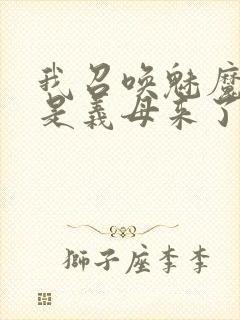 我召唤魅魔
是义母来了
狮子座李李